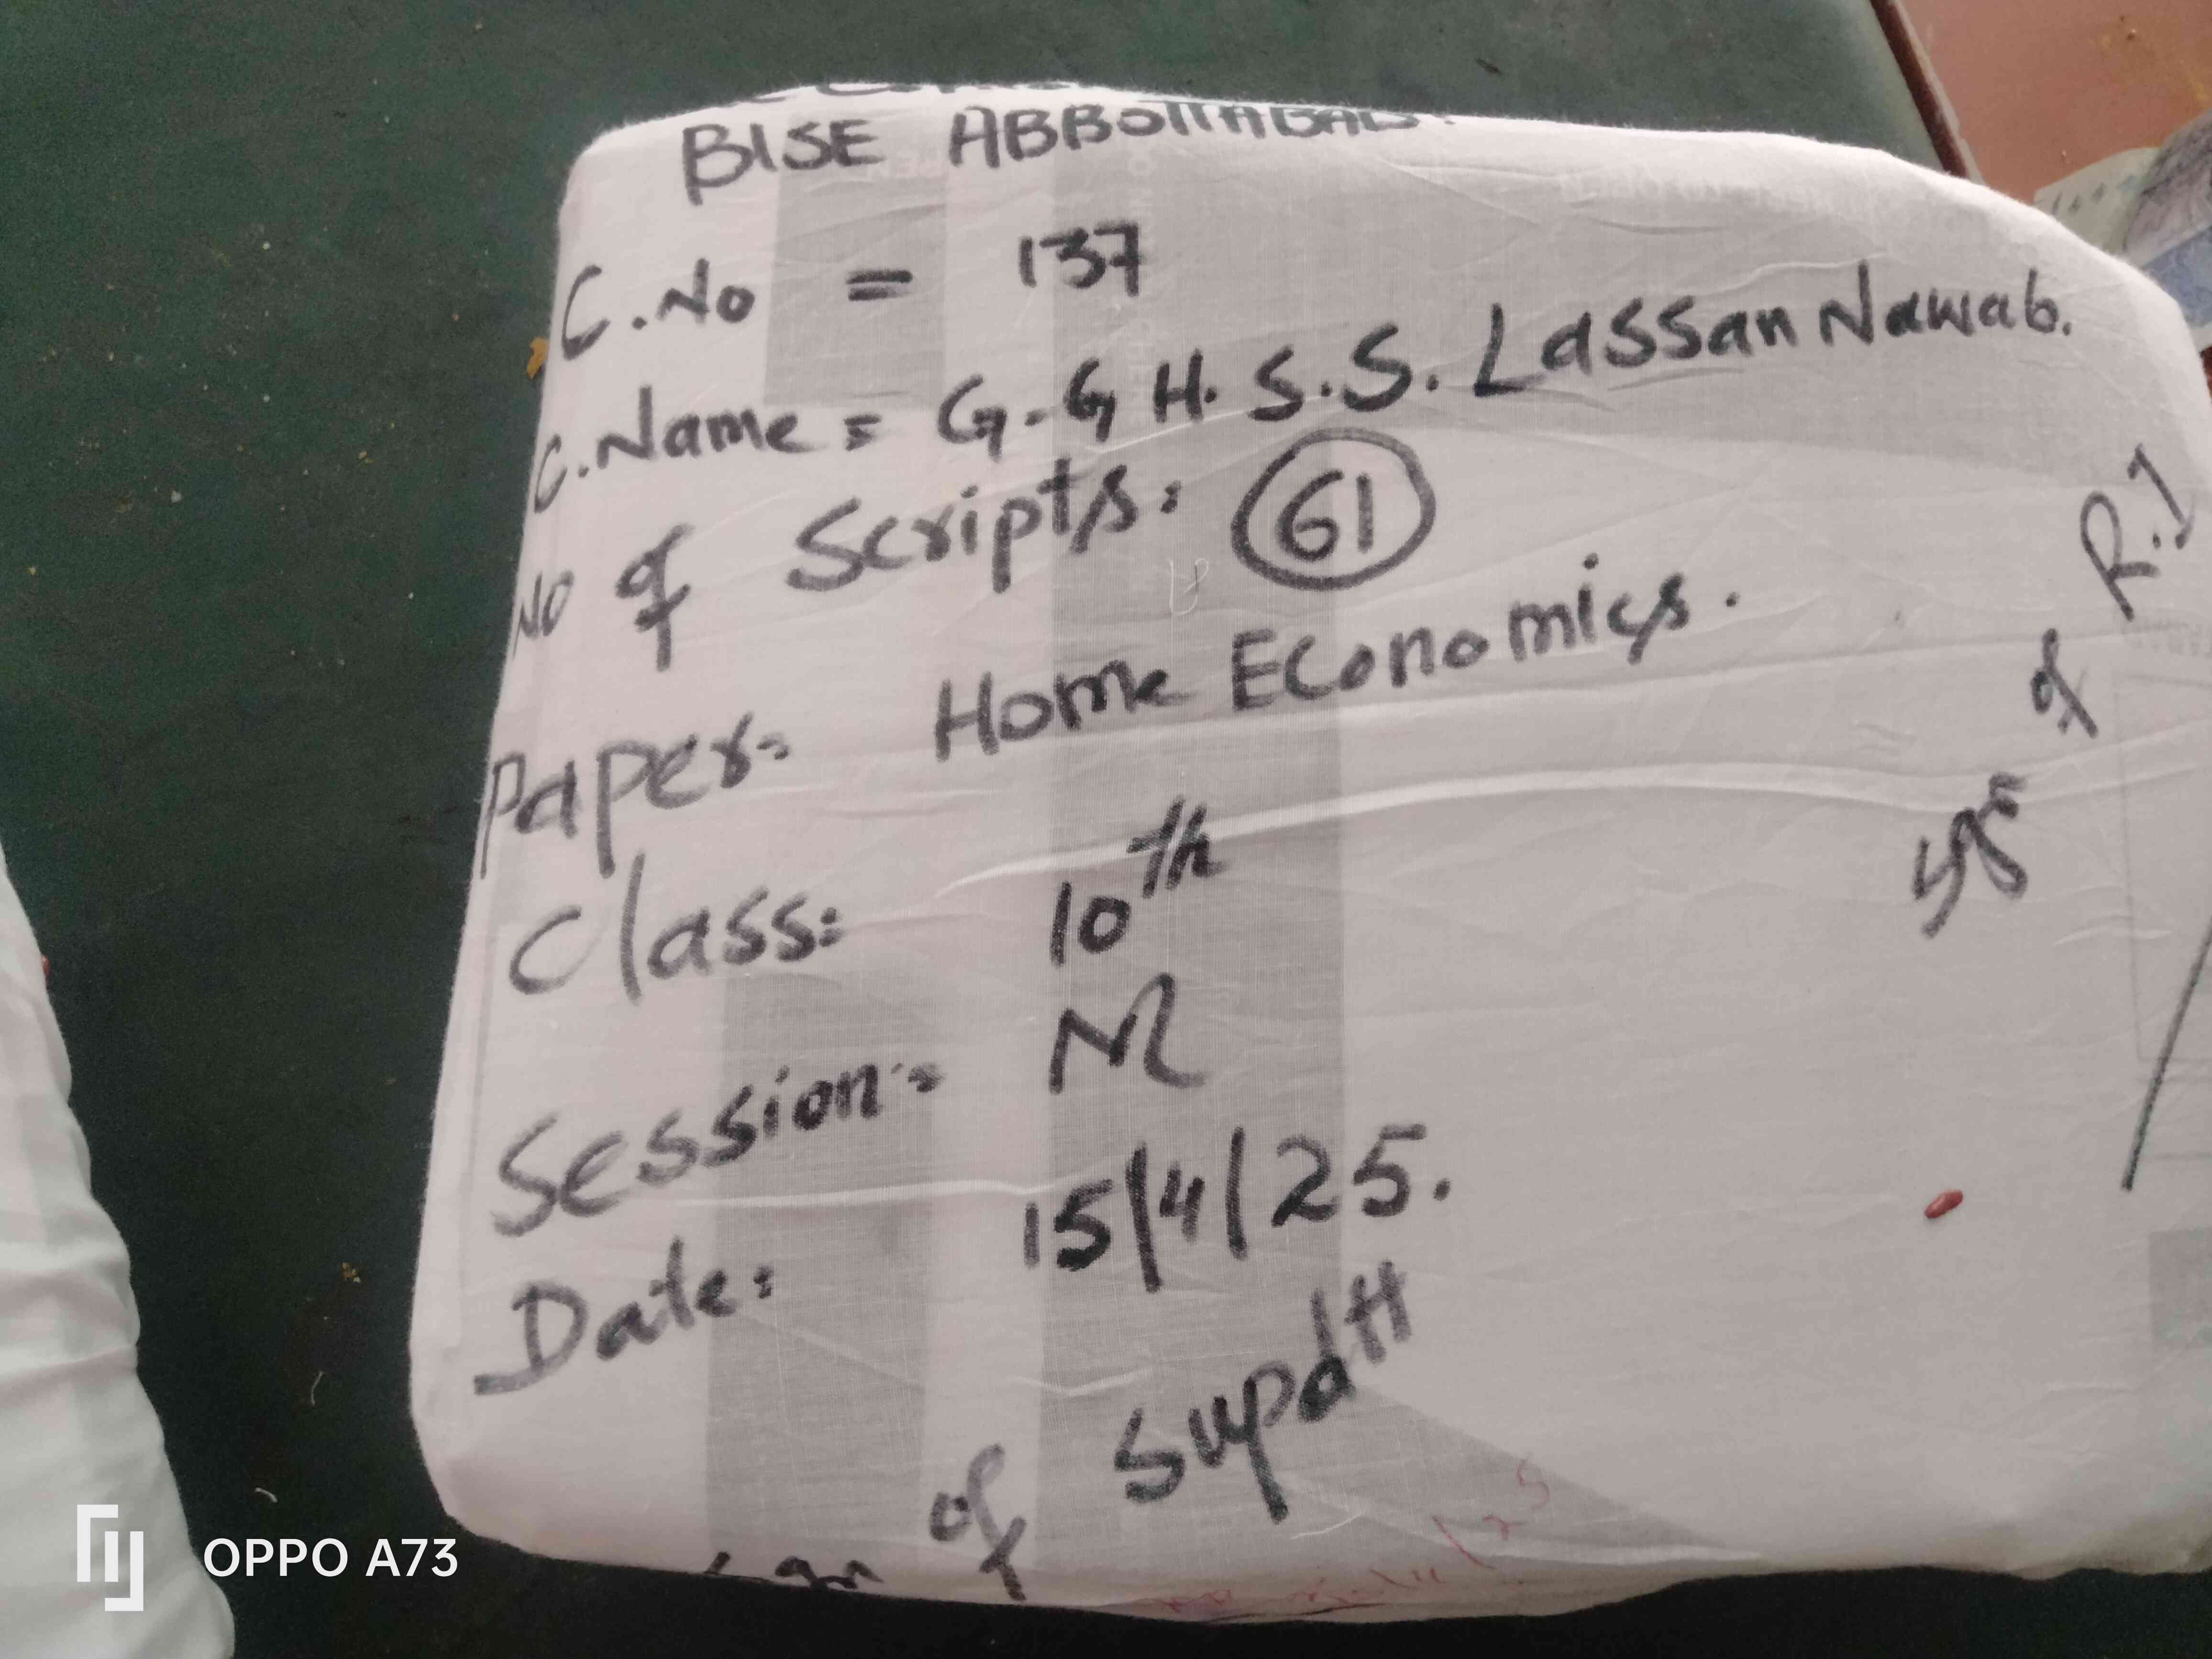 BISE ABBOTTABAD.
C.No = 137
C.Name = G.G H.S.S. Lassan Nawab.
No of Scripts: 61
Paper= Home Economics.
Class: 10th
Session:= M
Date: 15/4/25.
of Supdtt
of R.I
OPPO A73